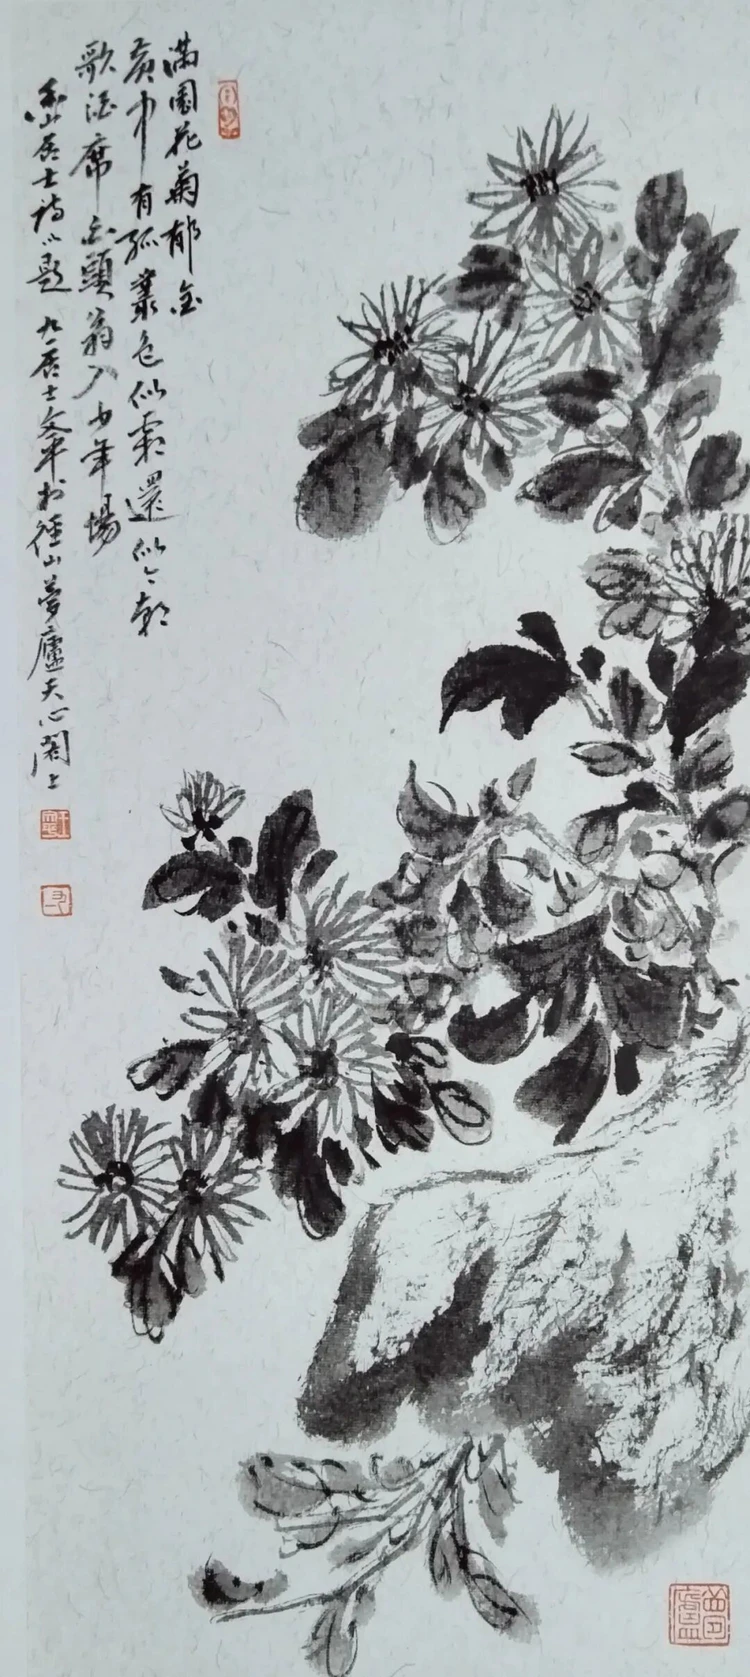 滿園花菊郁金
黃中有孤叢色似霜還似今朝
歌酒席白頭翁入少年場
香山居士詩以題 九居士於徑山夢廬天心閣上
夢廬